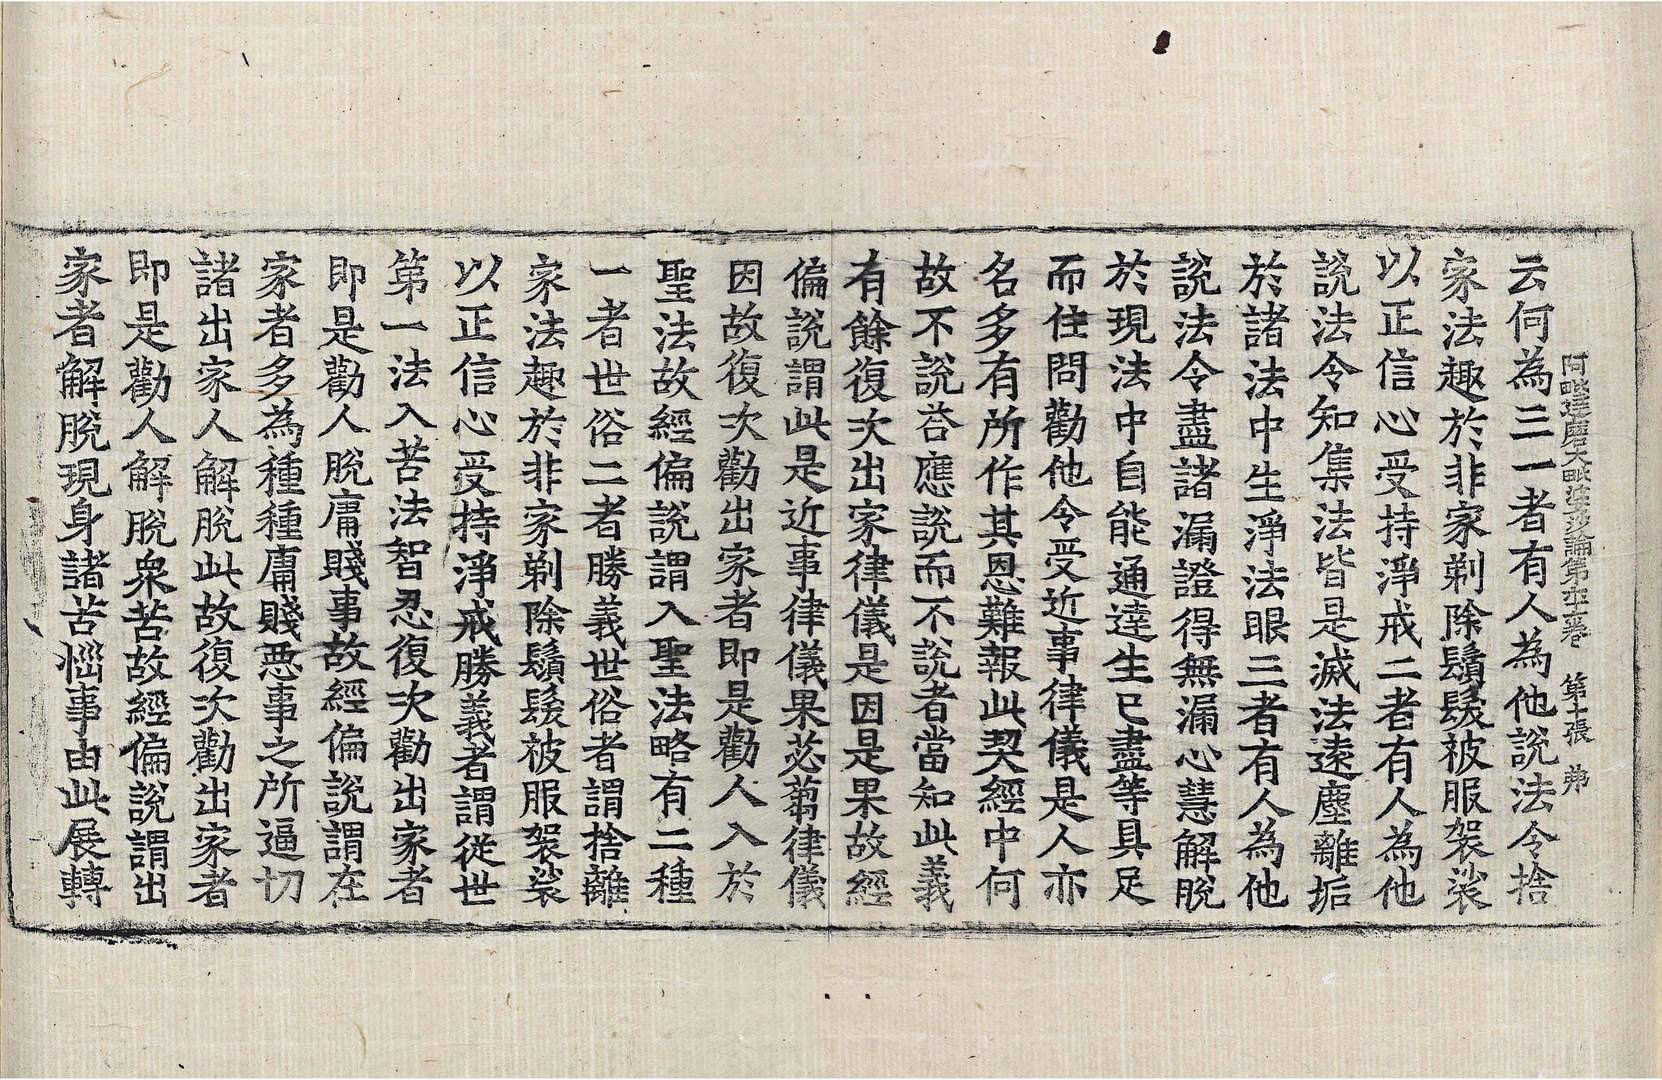 阿毗達磨大毗婆沙論第六十六卷 第十張 弗
云何為三一者有人為他說法令捨
家法趣於非家剃除鬚髮被服袈裟
以正信心受持淨戒二者有人為他
說法令知集法皆是滅法遠塵離垢
於諸法中生淨法眼三者有人為他
說法令盡諸漏證得無漏心慧解脫
於現法中自能通達生已盡等具足
而住問勸他令受近事律儀是人亦
名多有所作其恩難報此契經中何
故不說荅應說而不說者當知此義
有餘復次出家律儀是因是果故經
偏說謂此是近事律儀果苾芻律儀
因故復次勸出家者即是勸人入於
聖法故經偏說謂入聖法略有二種
一者世俗二者勝義世俗者謂捨離
家法趣於非家剃除鬚髮被服袈裟
以正信心受持淨戒勝義者謂從世
第一法入苦法智忍復次勸出家者
即是勸人脫庸賤事故經偏說謂在
家者多為種種庸賤惡事之所逼切
諸出家人解脫此故復次勸出家者
即是勸人解脫衆苦故經偏說謂出
家者解脫現身諸苦惱事由此展轉